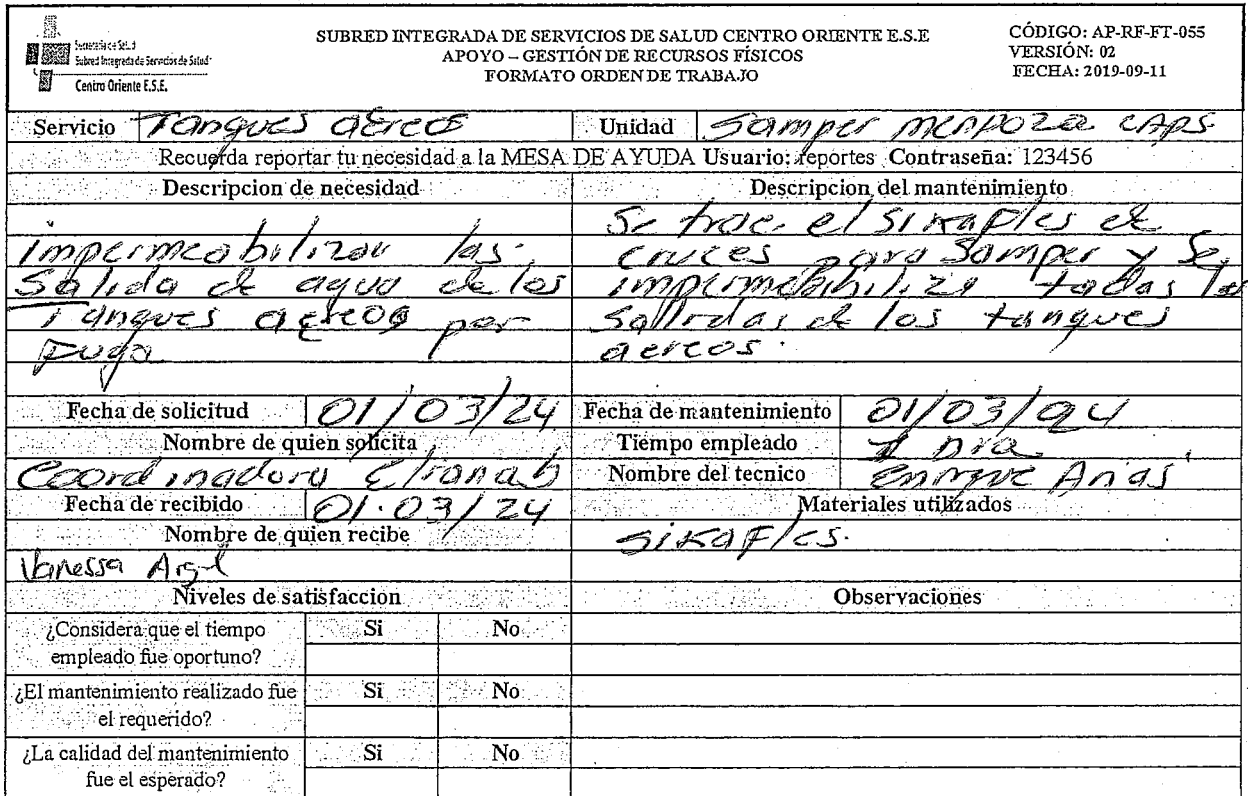 Secretaría de Salud
Subred Integrada de Servicios de Salud
Centro Oriente E.S.E.
SUBRED INTEGRADA DE SERVICIOS DE SALUD CENTRO ORIENTE E.S.E
APOYO – GESTIÓN DE RECURSOS FÍSICOS
FORMATO ORDEN DE TRABAJO
CÓDIGO: AP-RF-FT-055
VERSIÓN: 02
FECHA: 2019-09-11
Servicio Tanques aereos Unidad Samper Mendoza CAPS
Recuerda reportar tu necesidad a la MESA DE AYUDA Usuario: reportes Contraseña: 123456
Descripcion de necesidad
impermeabilizar las
Salida de agua de los
Tanques aereos por
Fuga
Descripcion del mantenimiento
Se trae el sikafles de
cruces para Samper y Se
impermeabiliza todas las
Salidas de los tanques
aereos.
Fecha de solicitud 01/03/24
Fecha de mantenimiento 01/03/24
Nombre de quien solicita
Coordinadora
Tiempo empleado 1 Dia
Nombre del tecnico Enrique Arias
Fecha de recibido 01.03/24
Materiales utilizados
sikafles.
Nombre de quien recibe
Vanessa
Niveles de satisfaccion
Observaciones
¿Considera que el tiempo
empleado fue oportuno?
Si No
¿El mantenimiento realizado fue
el requerido?
Si No
¿La calidad del mantenimiento
fue el esperado?
Si No